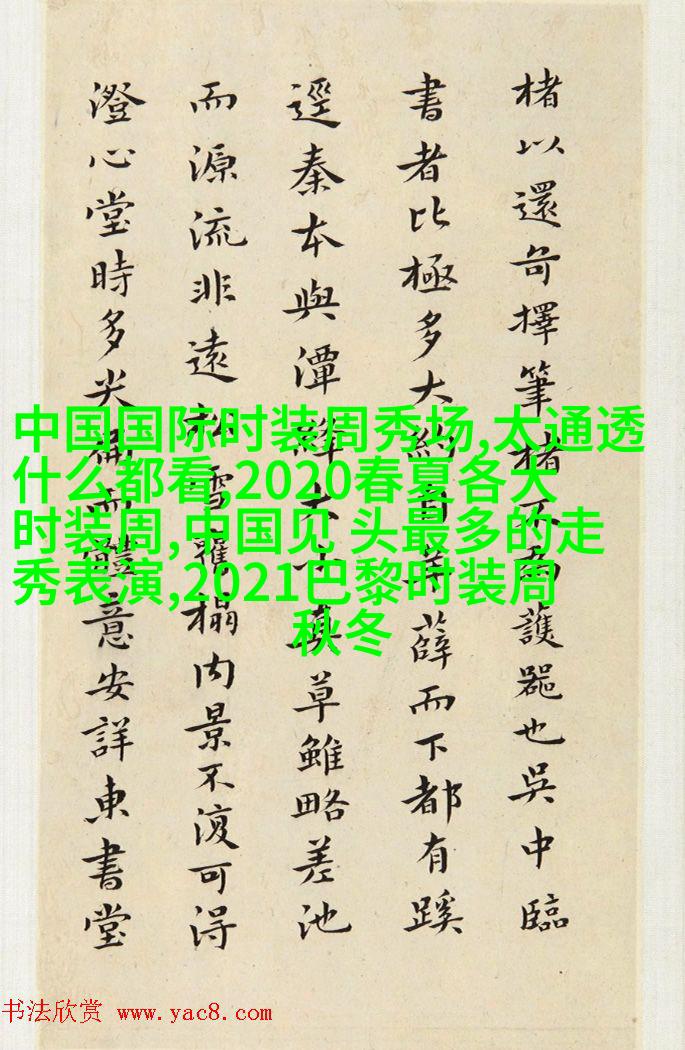 楮以還苟擇筆楮不為護器也吳中臨
書者比極多大約薛而下都有蹊
逕秦本與潭絳真草雖略差池
而源流非遠松雪榻內景不復可得
澄心堂時多尖而體意安詳東書堂
中国国际时装周秀场,太通透
什么都看,2020春夏各大
时装周,中国见 头最多的走
秀表演,2021巴黎时装周
秋冬
书法欣赏 www.yac8.com